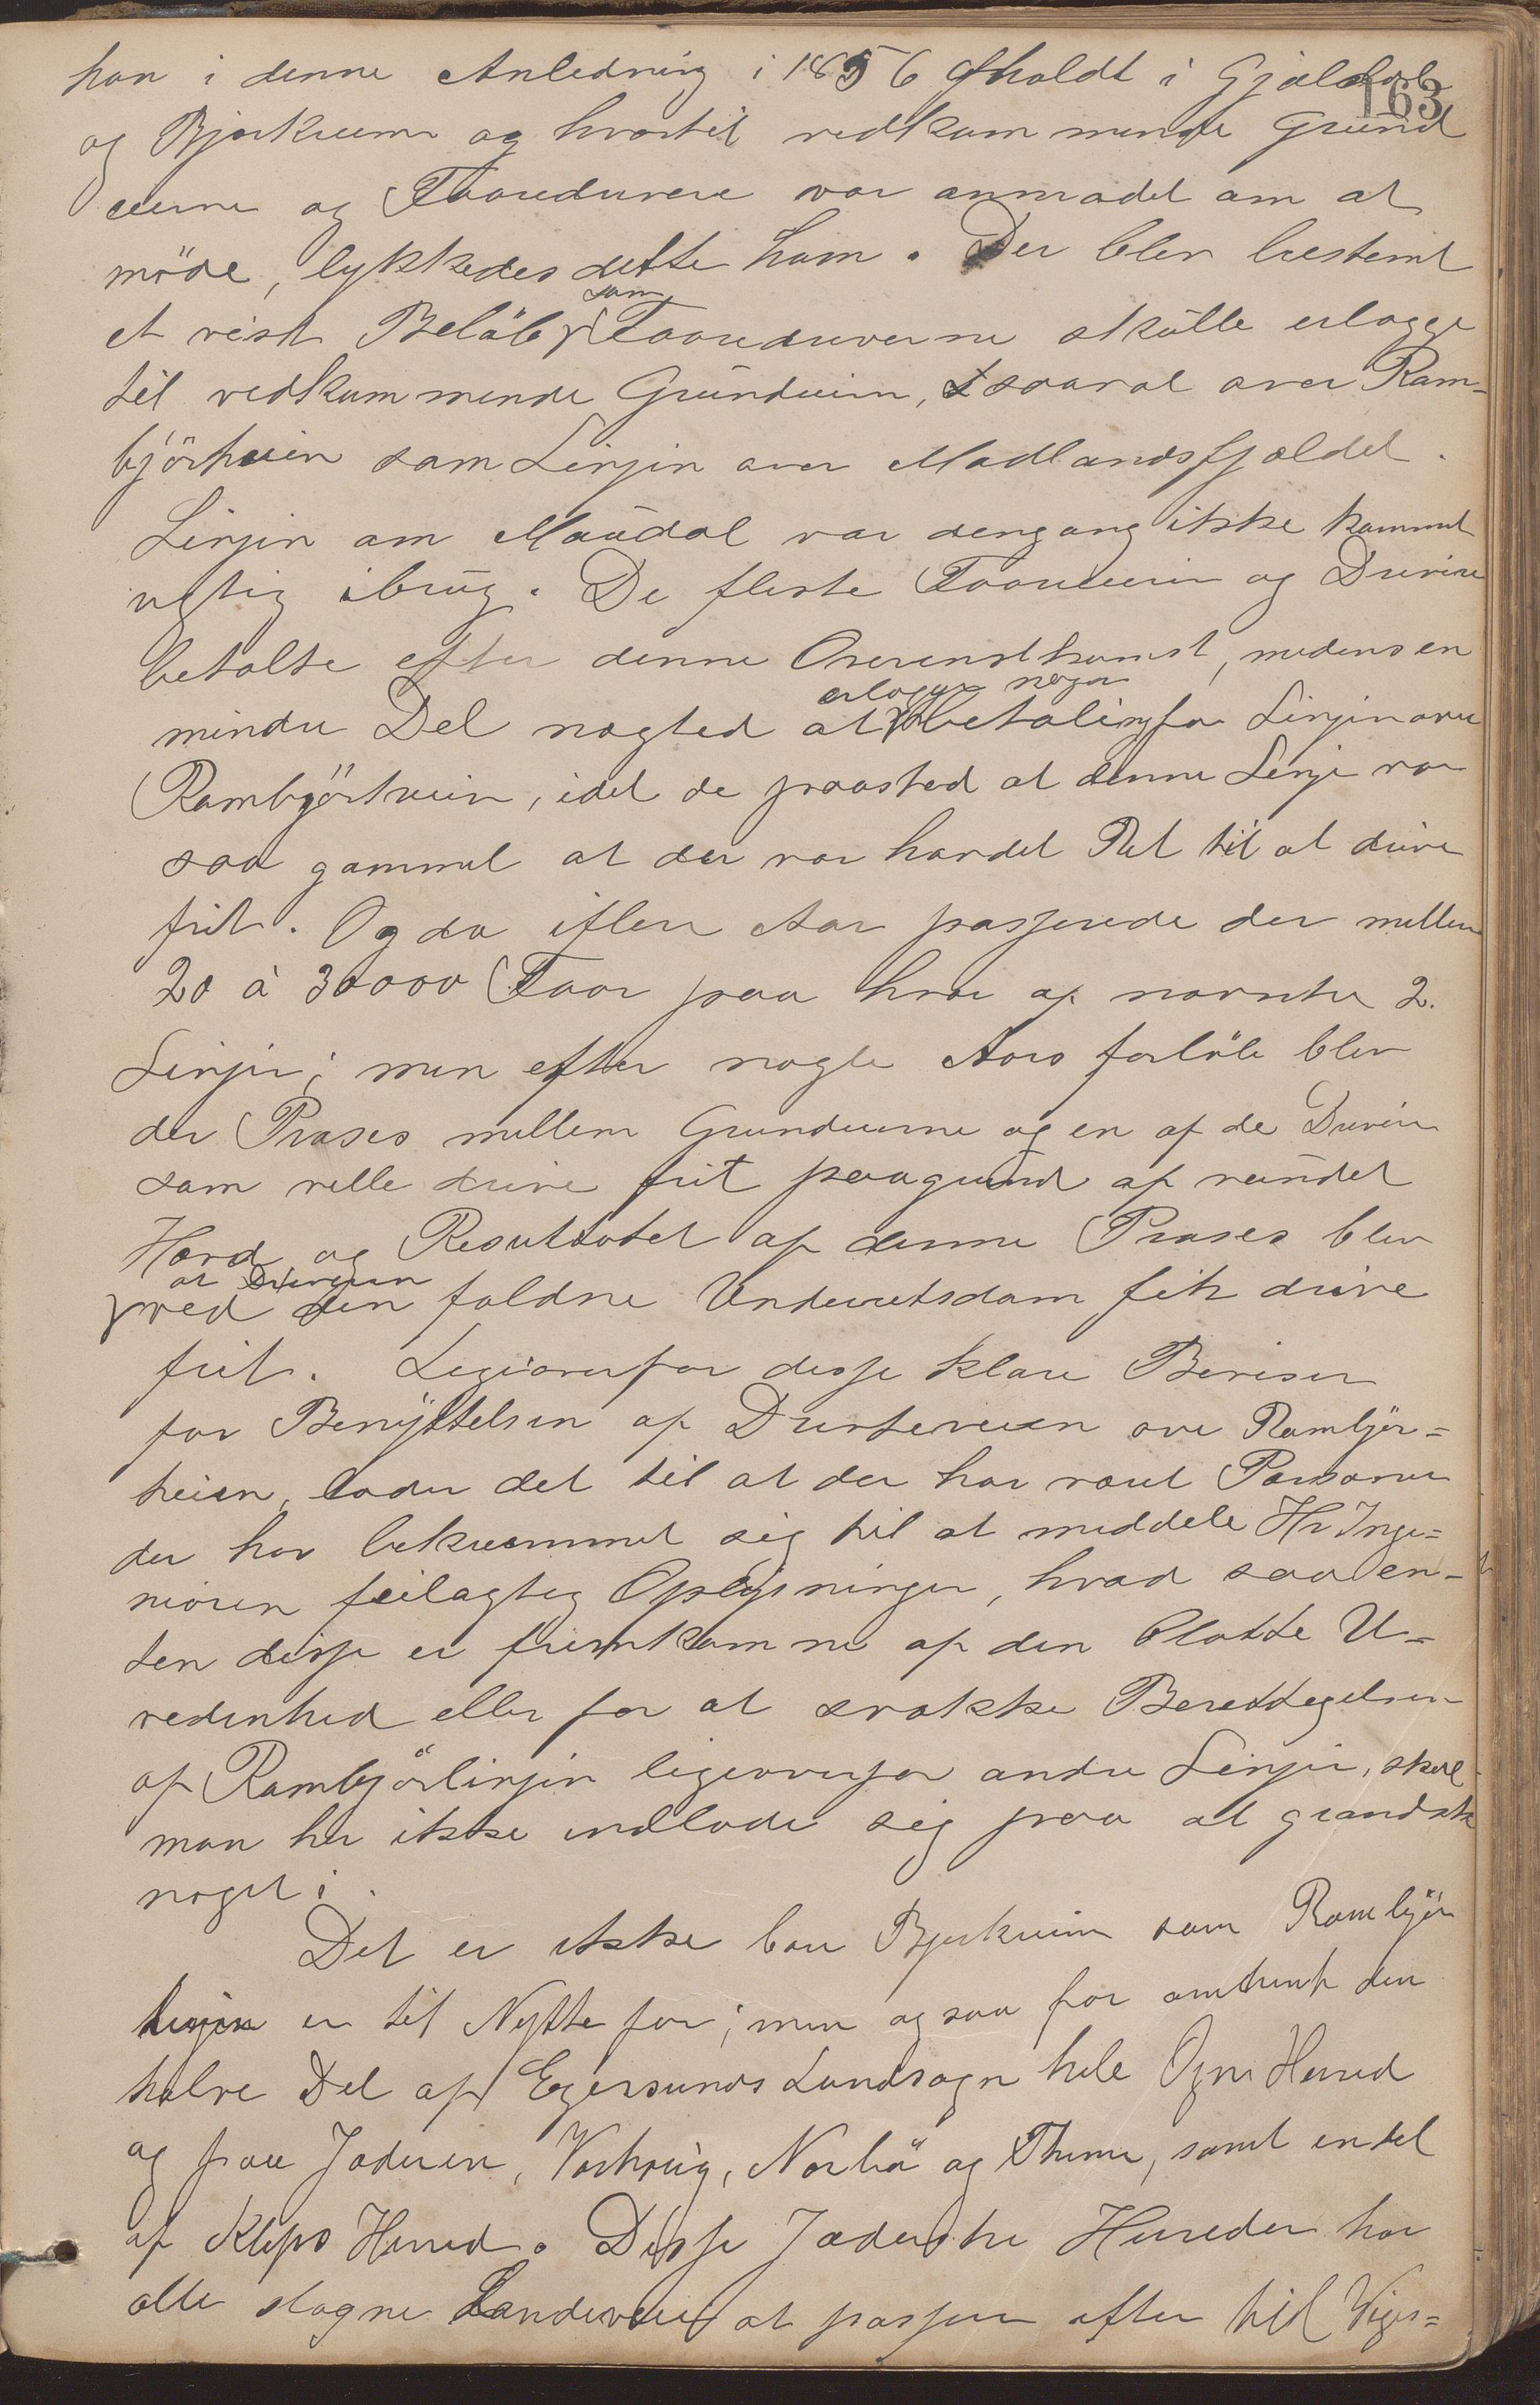 163
han i denne Anledning i 1856 afholdt i Gjæsdal
og Bjerkreim og hvortil vedkommende Grund
eierne og Faaredrivere var anmodet om at
møde, lykkedes dette ham. Der blev bestemt
et vist Beløb som Faaredriverne skulle erlægge
til vedkommende Grundeiere, saavel over Ram-
bjørheien som Linjen over Madlandsfjældet.
Linjen om Maudal var dengang ikke kommet
rigtig ibrug. De fleste Faareeiere og Drivere
betalte efter denne Overenskomst, medens en
mindre Del nægted at erlægge nogen betaling for Linjen over
Rambjørheien, idet de paasted at denne Linje var
saa gammel at der var hævdet Ret til at drive
frit. Og da iflere Aar passerede der mellem
20 à 30000 Faar paa hver af nævnte 2.
Linjer; men efter nogle Aars forløb blev
der Proses mellem Grundeierne og en af de Drivere
som velle drive frit paagrund af vundet
Hævd og Resultatet af denne Proses blev
at Driveren ved den faldne Underretsdom fik drive
frit. Ligeoverfor disse klare Beviser
for Benyttelsen af Drifteveien over Rambjør=
heien, lader det til at der har været Personer
der har bekvemmet sig til at meddele Hr Inge=
niøren feilagtig Oplysninger, hvad saa en-
ten disse er fremkomne af den blotte U=
videnhed eller for at svække Berettigelsen
af Rambjørlinjen ligeoverfor andre Linjer, skal
man her ikke indlade sig paa at grandske
noget i.
Det er ikke bare Bjerkreim som Rambjør
linjen er til Nytte for; men ogsaa for omtrent den
halve Del af Egersunds Landsogn hele Ogne Herred
og paa Jæderen, Varhoug, Nærbø og Thime, samt endel
af Klepps Herred. Disse Jæderske Herreder har
alle slagne Landeveie at passere efter til Viges=